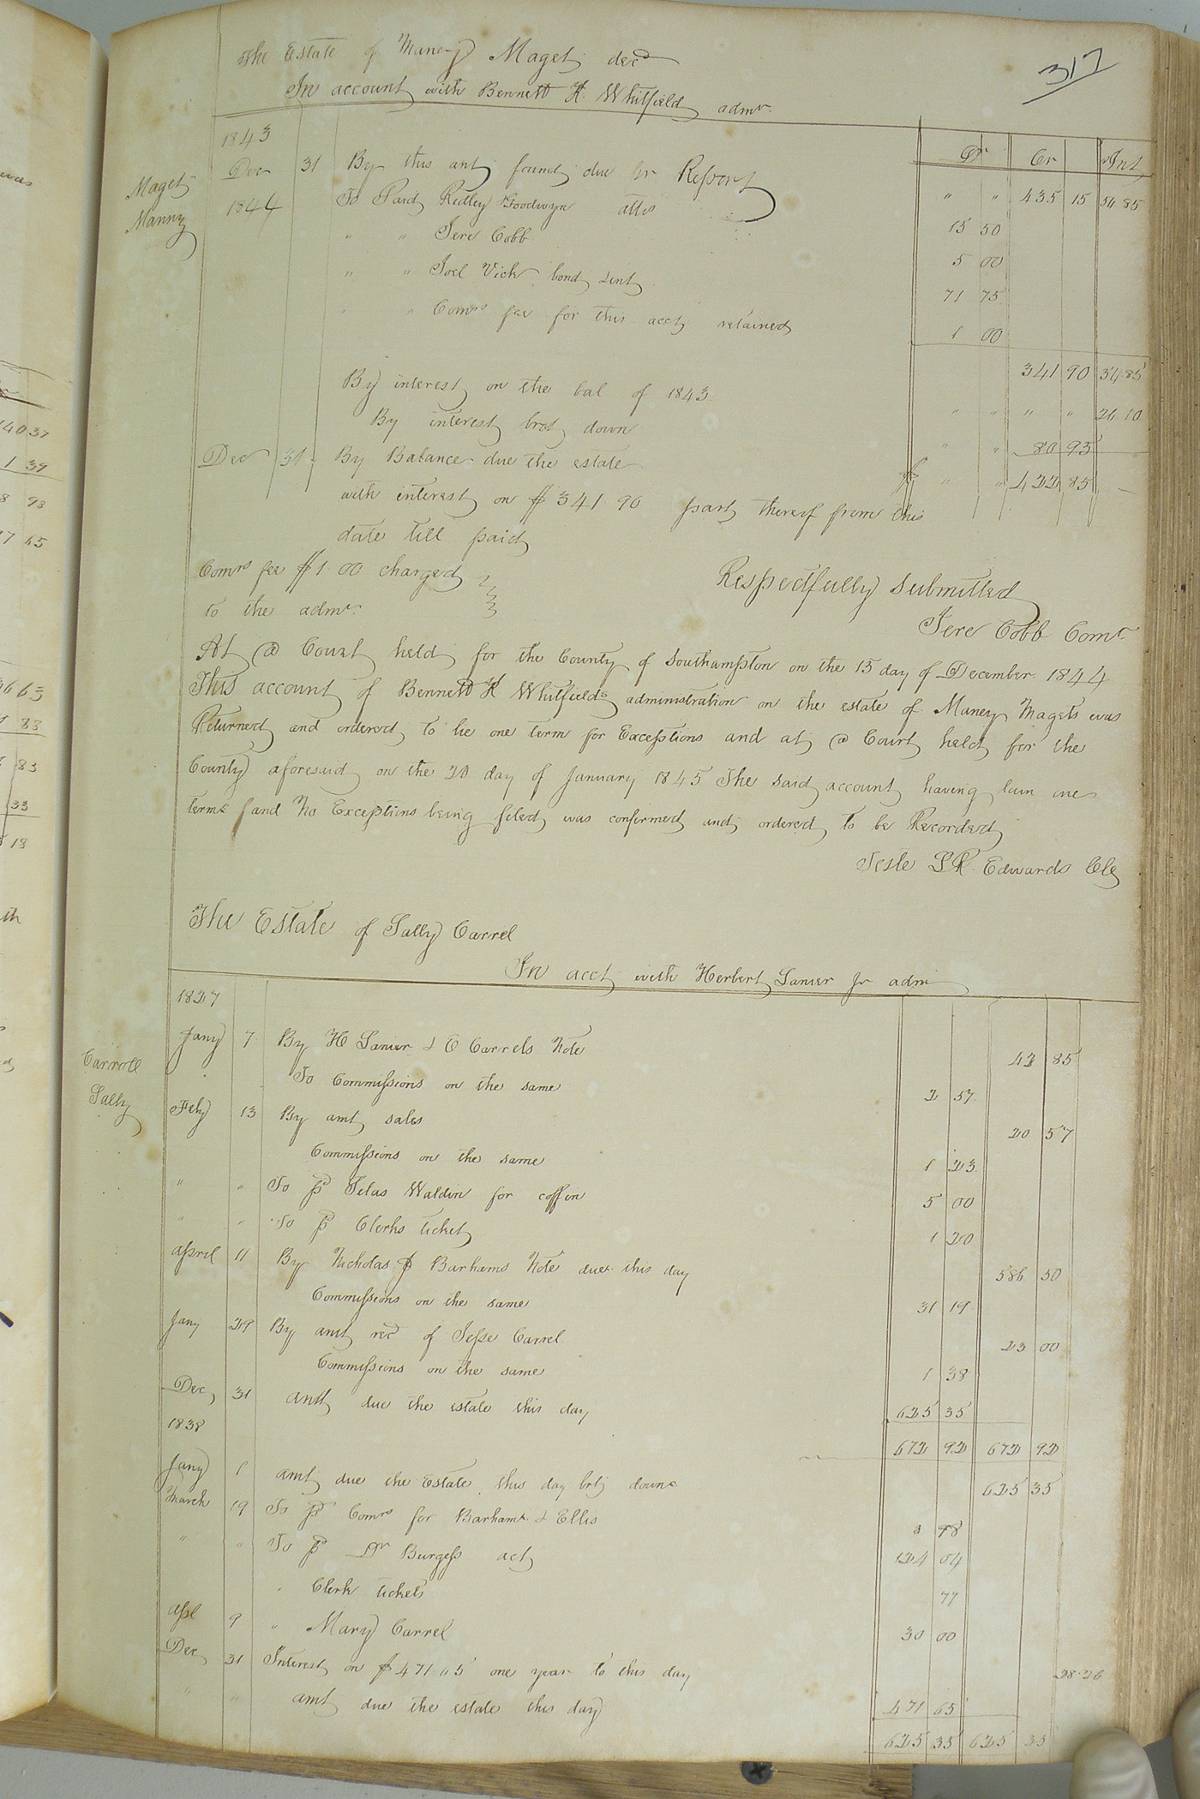 317
The Estate of Maney Maget decd
In account with Bennett K. Whitfield admr
Dr Cr Int
1843
Maget Manny
Dec 31 By this amt found due pr Report " " 435 15 54 85
1844 To Paid Ridley Goodwyn atto 15 50
" " Jere Cobb 5 00
" " Joel Vick bond & int 71 75
" " Comrs fee for this acct retained 1 00
341 90 54 85
By interest on the bal of 1843 " " " " 26 10
By interest brot down " " 80 95
Dec 31 By Balance due the estate $ " " 422 85
with interest on $341 90 part thereof from this
date till paid
Comrs fee $1 00 charged
to the admr
Respectfully submitted
Jere Cobb Comr
At a Court held for the County of Southampton on the 15 day of December 1844
This account of Bennett K Whitfields administration on the estate of Maney Magets was
Returned and ordered to lie one term for Exceptions and at a Court held for the
County aforesaid on the 20 day of January 1845 The said account having lain one
term and No Exceptions being filed was confirmed and ordered to be Recorded
Teste L R Edwards Clk
The Estate of Sally Carrel
In acct with Herbert Lanier Jr adm
1827
Carroll Sally
Jany 7 By H Lanier & C Carrels Note 42 85
To Commissions on the same 2 57
Feby 13 By amt sales 20 57
Commissions on the same 1 23
" " To pd Silas Waldin for coffin 5 00
" " To pd Clerks ticket 1 20
April 11 By Nicholas J Barhams Note due this day 586 50
Commissions on the same 31 19
Jany 29 By amt recd of Jesse Carrel 23 00
Commissions on the same 1 38
Dec 31 amt due the estate this day 625 35
1838 672 92 672 92
Jany 1 amt due the Estate this day brt down 625 35
March 19 To pd Comrs for Barham & Ellis 98
" " To pd Dr Burgess act 124 04
" Clerk tickets 77
Apl 9 " Mary Carrel 30 00
Dec 31 Interest on $471 65 one year to this day 28.26
" " amt due the estate this day 471 65
625 35 625 35